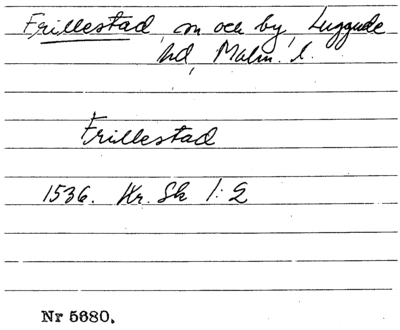 Frillestad, sn och by, Luggude
hd, Malm. l.
Frillestad
1536. Kr. Sk 1: 2
Nr 5680.